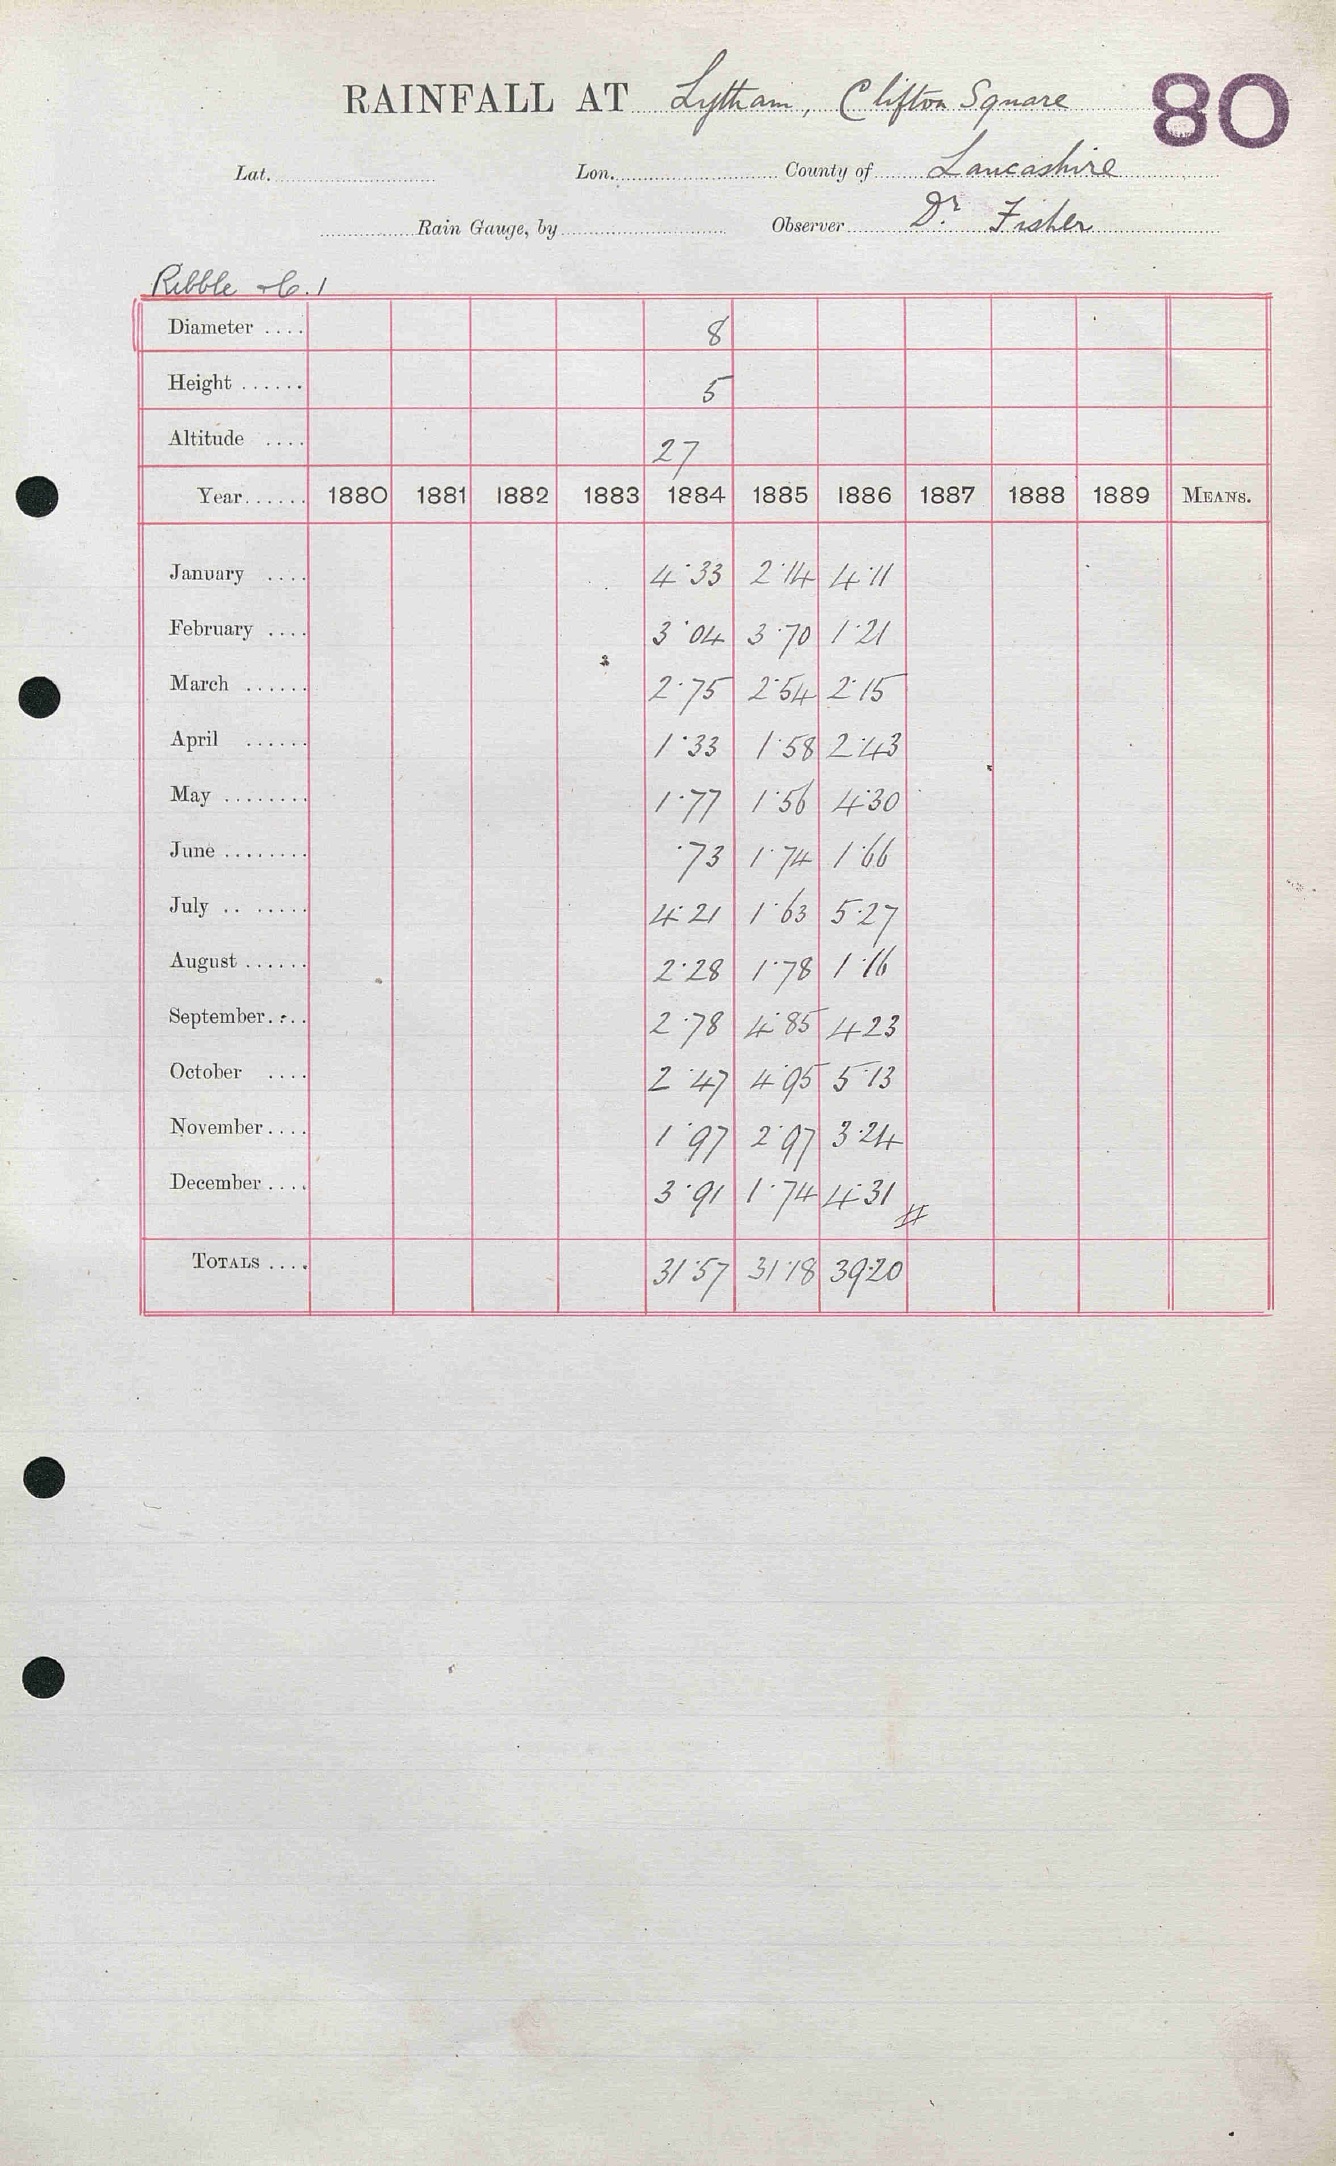 RAINFALL AT Lytham, Clifton Square 80
Lat. Lon. County of Lancashire
Rain Gauge, by Observer Dr. Fisher
Ribble 1
Diameter .... 8
Height ...... 5
Altitude .... 27
Year...... 1880 1881 1882 1883 1884 1885 1886 1887 1888 1889 MEANS.
January .... 4·33 2·14 4·11
February .... 3·04 3·70 1·21
March ...... 2·75 2·54 2·15
April ...... 1·33 1·58 2·43
May ........ 1·77 1·56 4·30
June ........ ·73 1·74 1·66
July .. ..... 4·21 1·63 5·27
August ...... 2·28 1·78 1·16
September.... 2·78 4·85 4·23
October .... 2·47 4·95 5·13
November.... 1·97 2·97 3·24
December.... 3·91 1·74 4·31
TOTALS .... 31·57 31·18 39·20